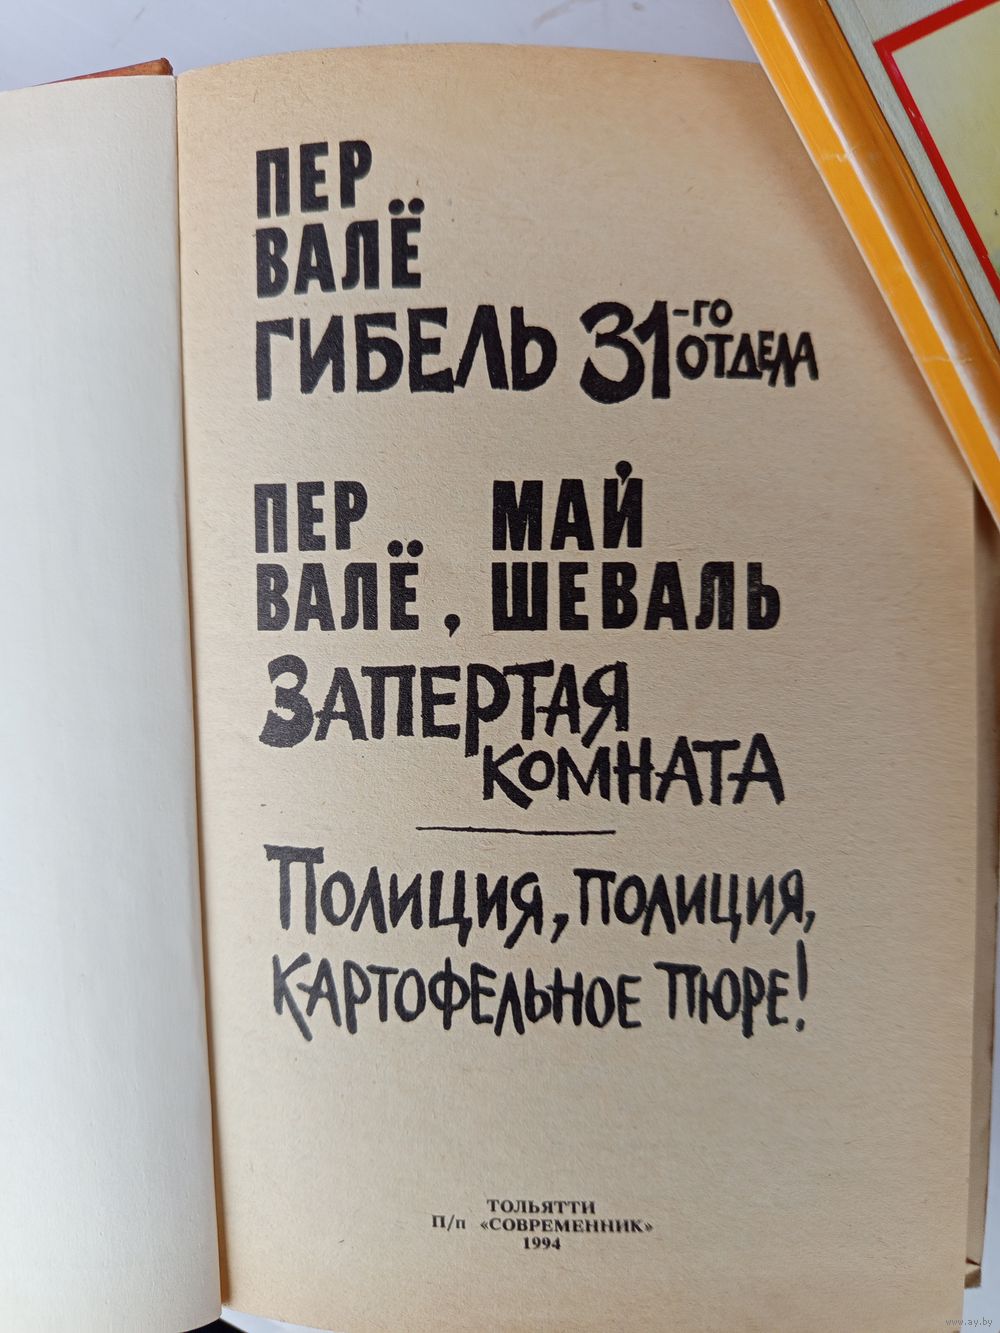 ПЕР
ВАЛЁ
ГИБЕЛЬ 31-ГО ОТДЕЛА
ПЕР ВАЛЁ, МАЙ ШЕВАЛЬ
ЗАПЕРТАЯ
КОМНАТА
ПОЛИЦИЯ, ПОЛИЦИЯ,
КАРТОФЕЛЬНОЕ ПЮРЕ!
ТОЛЬЯТТИ
П/п «СОВРЕМЕННИК»
1994
www.ay.by